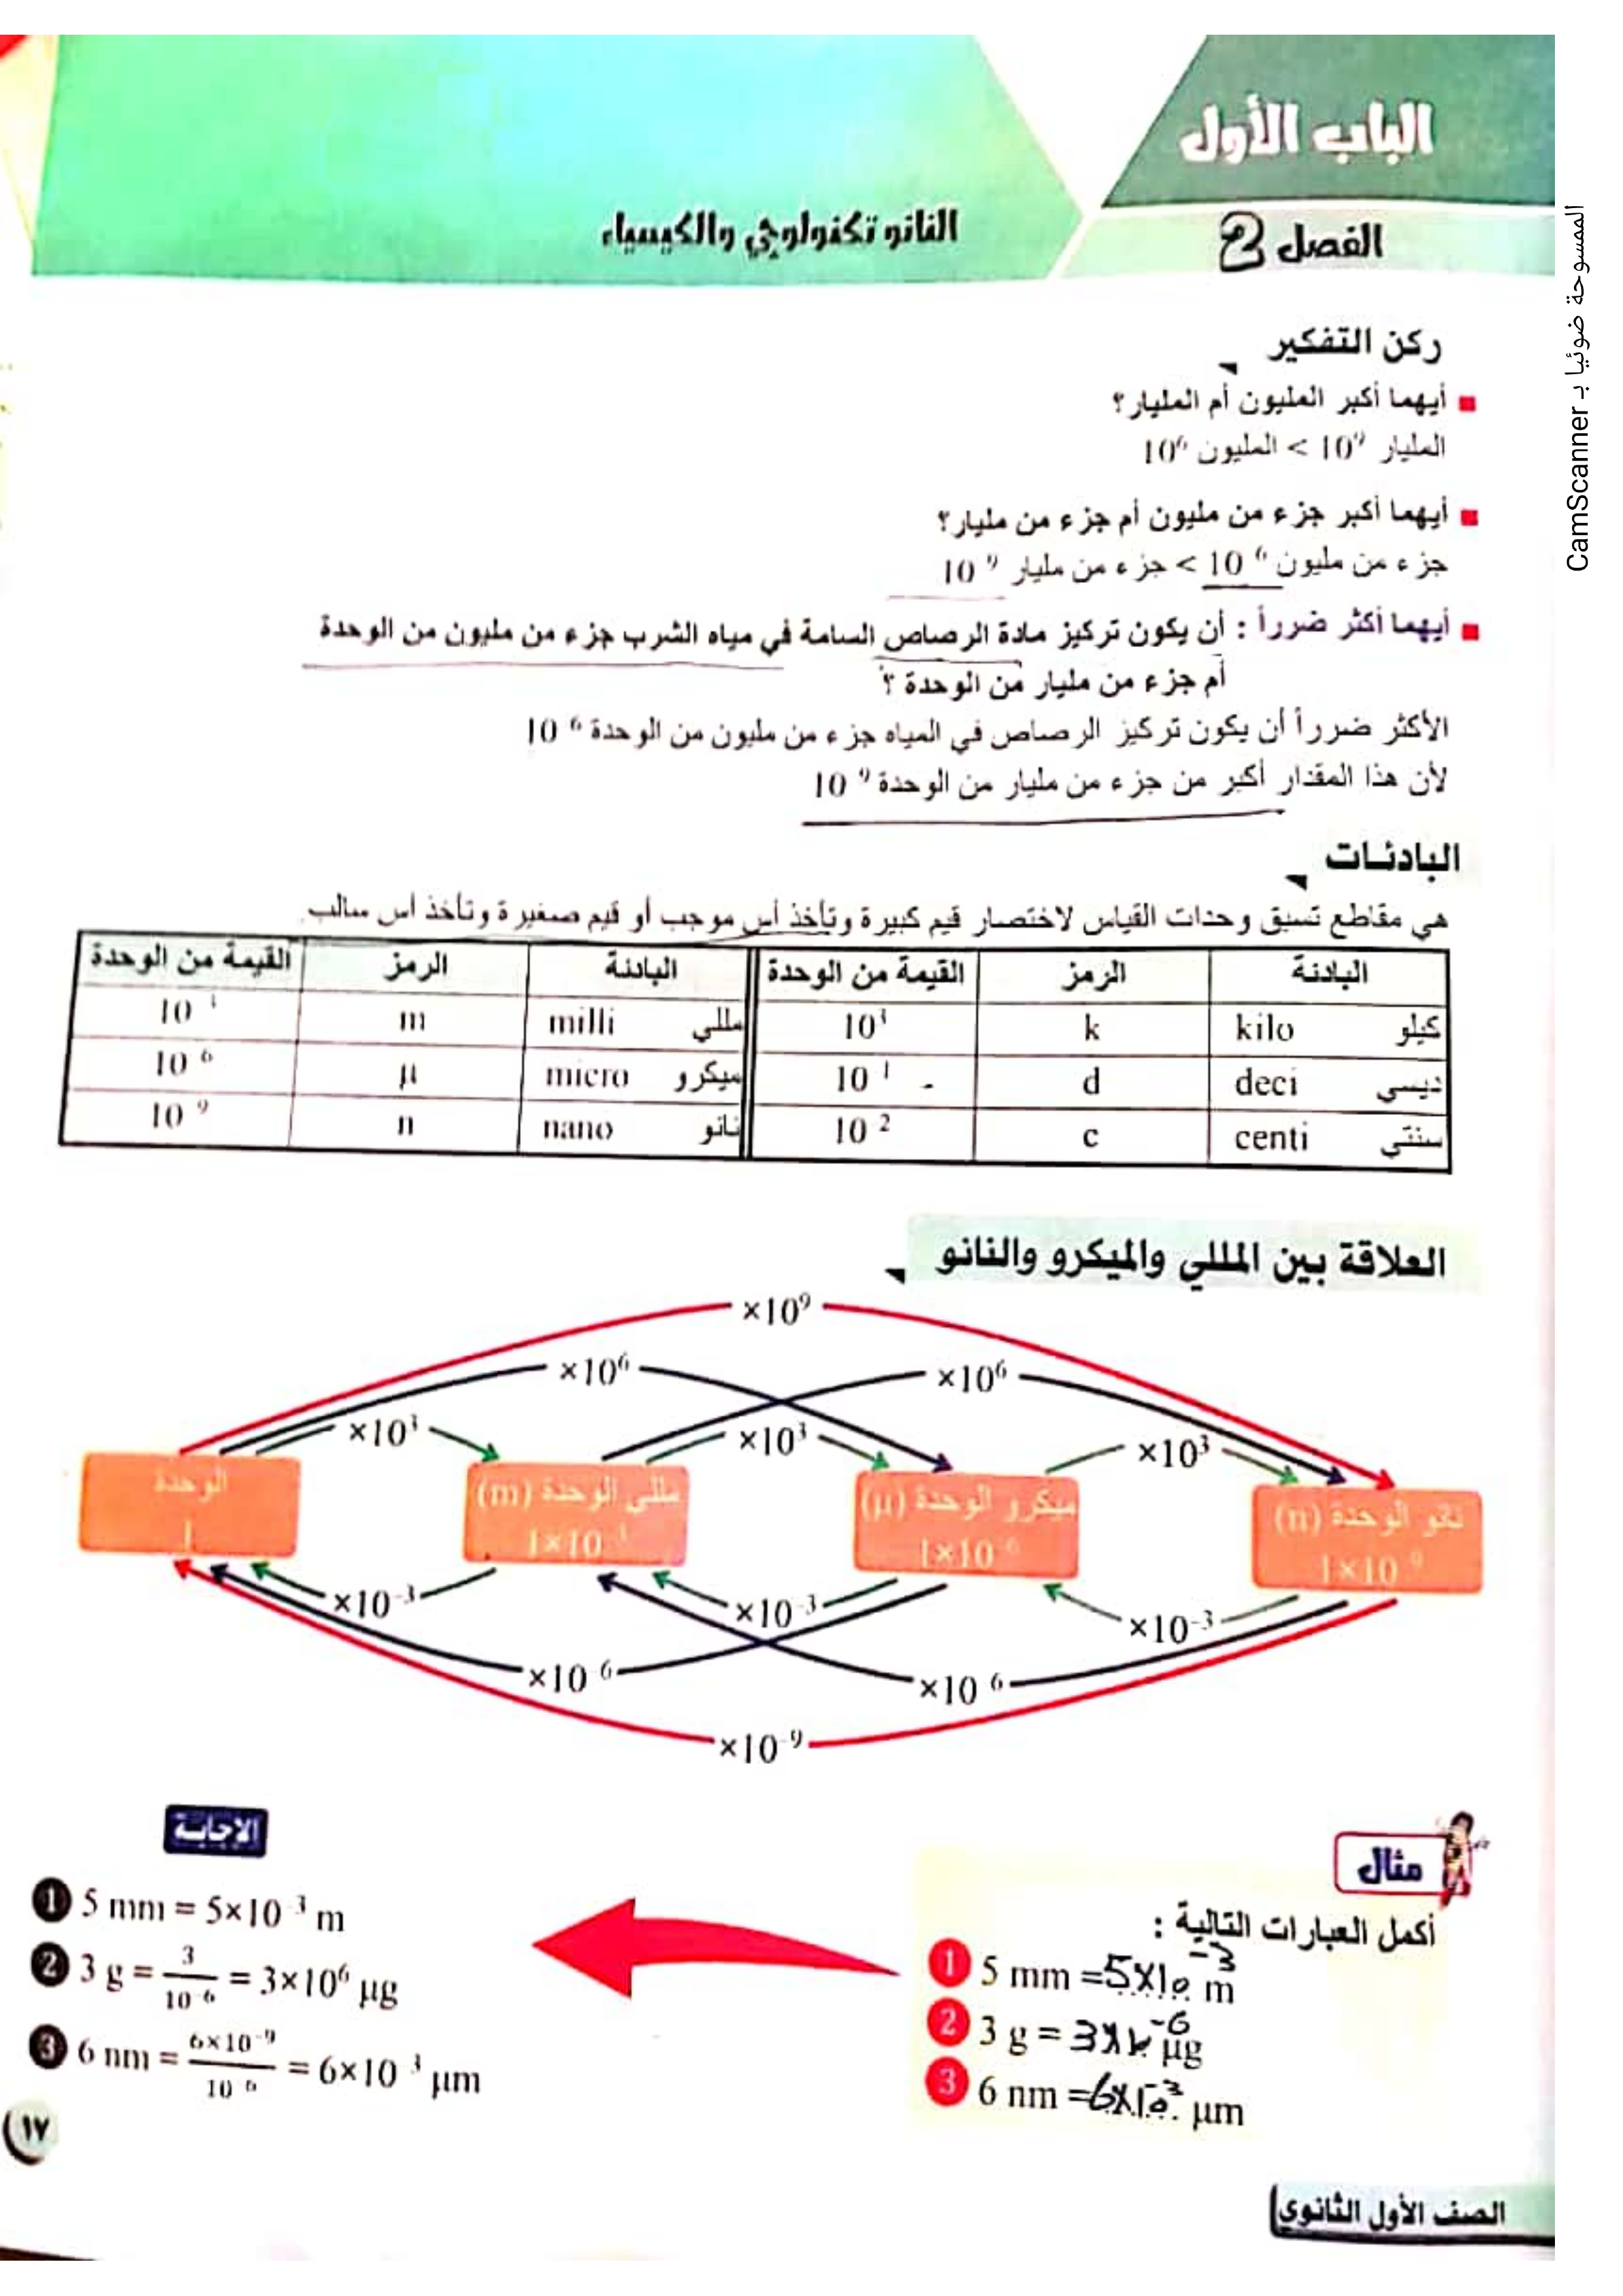 الباب الأول
الفصل 2
النانو تكنولوجي والكيمياء
ركن التفكير
أيهما أكبر المليون أم المليار؟
المليار 10⁹ > المليون 10⁶
أيهما أكبر جزء من مليون أم جزء من مليار؟
جزء من مليون 10 ⁶ > جزء من مليار 10 ⁹
أيهما أكثر ضرراً : أن يكون تركيز مادة الرصاص السامة في مياه الشرب جزء من مليون من الوحدة
أم جزء من مليار من الوحدة ؟
الأكثر ضرراً أن يكون تركيز الرصاص في المياه جزء من مليون من الوحدة 10 ⁶
لأن هذا المقدار أكبر من جزء من مليار من الوحدة 10 ⁹
البادئات
هي مقاطع تسبق وحدات القياس لاختصار قيم كبيرة وتأخذ أس موجب أو قيم صغيرة وتأخذ أس سالب.
البادئة الرمز القيمة من الوحدة البادئة الرمز القيمة من الوحدة
كيلو kilo k 10³ مللي milli m 10 ³
ديسي deci d 10 ¹ - ميكرو micro µ 10 ⁶
سنتي centi c 10 ² نانو nano n 10 ⁹
العلاقة بين المللي والميكرو والنانو
×10⁹
×10⁶ ×10⁶
×10³ ×10³ ×10³
الوحدة
1
مللي الوحدة (m)
1×10 ³
ميكرو الوحدة (µ)
1×10 ⁶
نانو الوحدة (n)
1×10 ⁹
×10⁻³ ×10⁻³ ×10⁻³
×10 ⁶ ×10 ⁶
×10⁻⁹
مثال
أكمل العبارات التالية :
1 5 mm = 5×10⁻³ m
2 3 g = 3×10⁻⁶ µg
3 6 nm = 6×10⁻³ µm
الإجابة
1 5 mm = 5×10⁻³ m
2 3 g = 3/10⁻⁶ = 3×10⁶ µg
3 6 nm = 6×10⁻⁹/10⁻⁶ = 6×10 ³ µm
١٧
الصف الأول الثانوي
الممسوحة ضوئيا بـ CamScanner